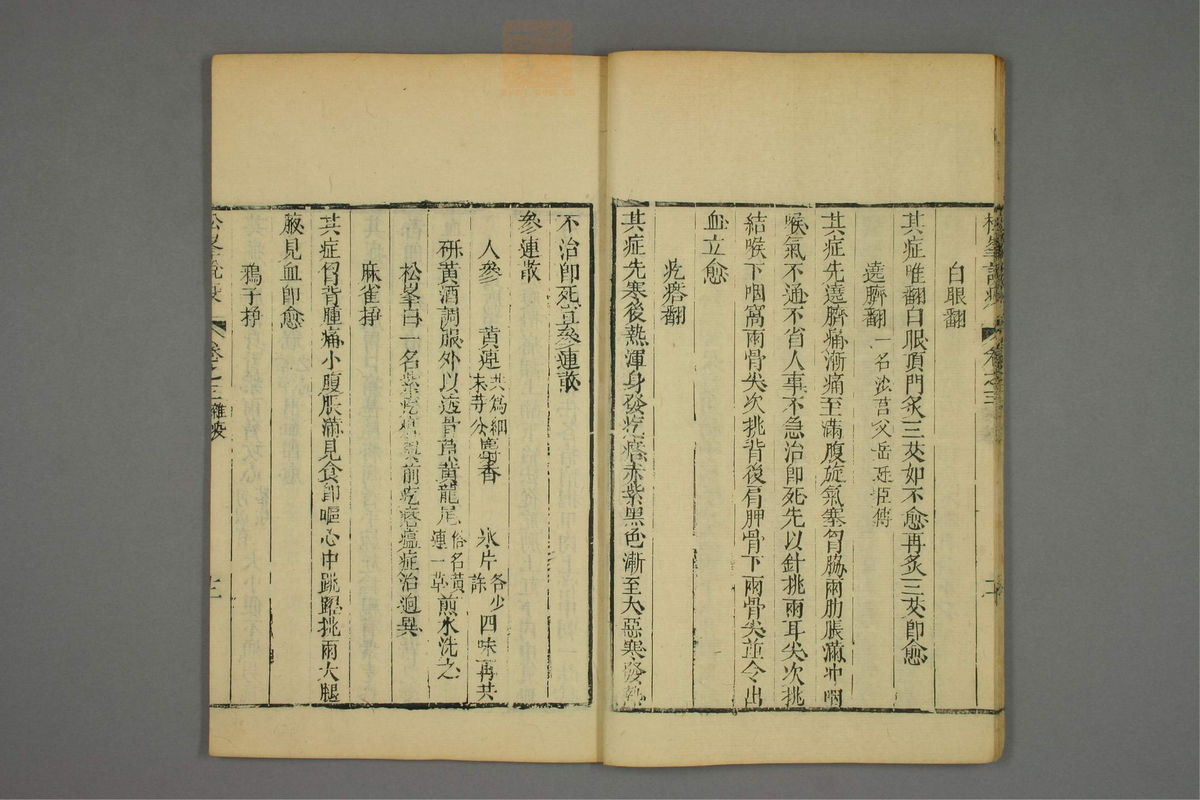 松峯說疫 卷之三
白眼翻
其症唯翻白眼頂門炙三艾如不愈再炙三艾卽愈
遶臍翻 一名
其症先遶臍痛漸痛至滿腹旋氣塞胷脇兩肋脹滿冲咽
喉氣不通不省人事不急治卽死先以針挑兩耳尖次挑
結喉下咽窩兩骨尖次挑背後肩胛骨下兩骨尖並令出
血立愈
疙瘩翻
其症先寒後熱渾身發疙瘩赤紫黑色漸至大惡寒發熱
不治卽死宜參連散
參連散
人參 黃連 共為細末等分 麝香 氷片 各少許 四味再共
研黃酒調服外以透骨草黃龍尾 俗名黃連一草 煎水洗之
松峯曰一名紫疙瘩與前疙瘩瘟症治迥異
麻雀掙
其症胷背腫痛小腹脹滿見食卽嘔心中跳躍挑兩大腿
腋見血卽愈
鴉子掙
松峯說疫 卷之三 雜疫